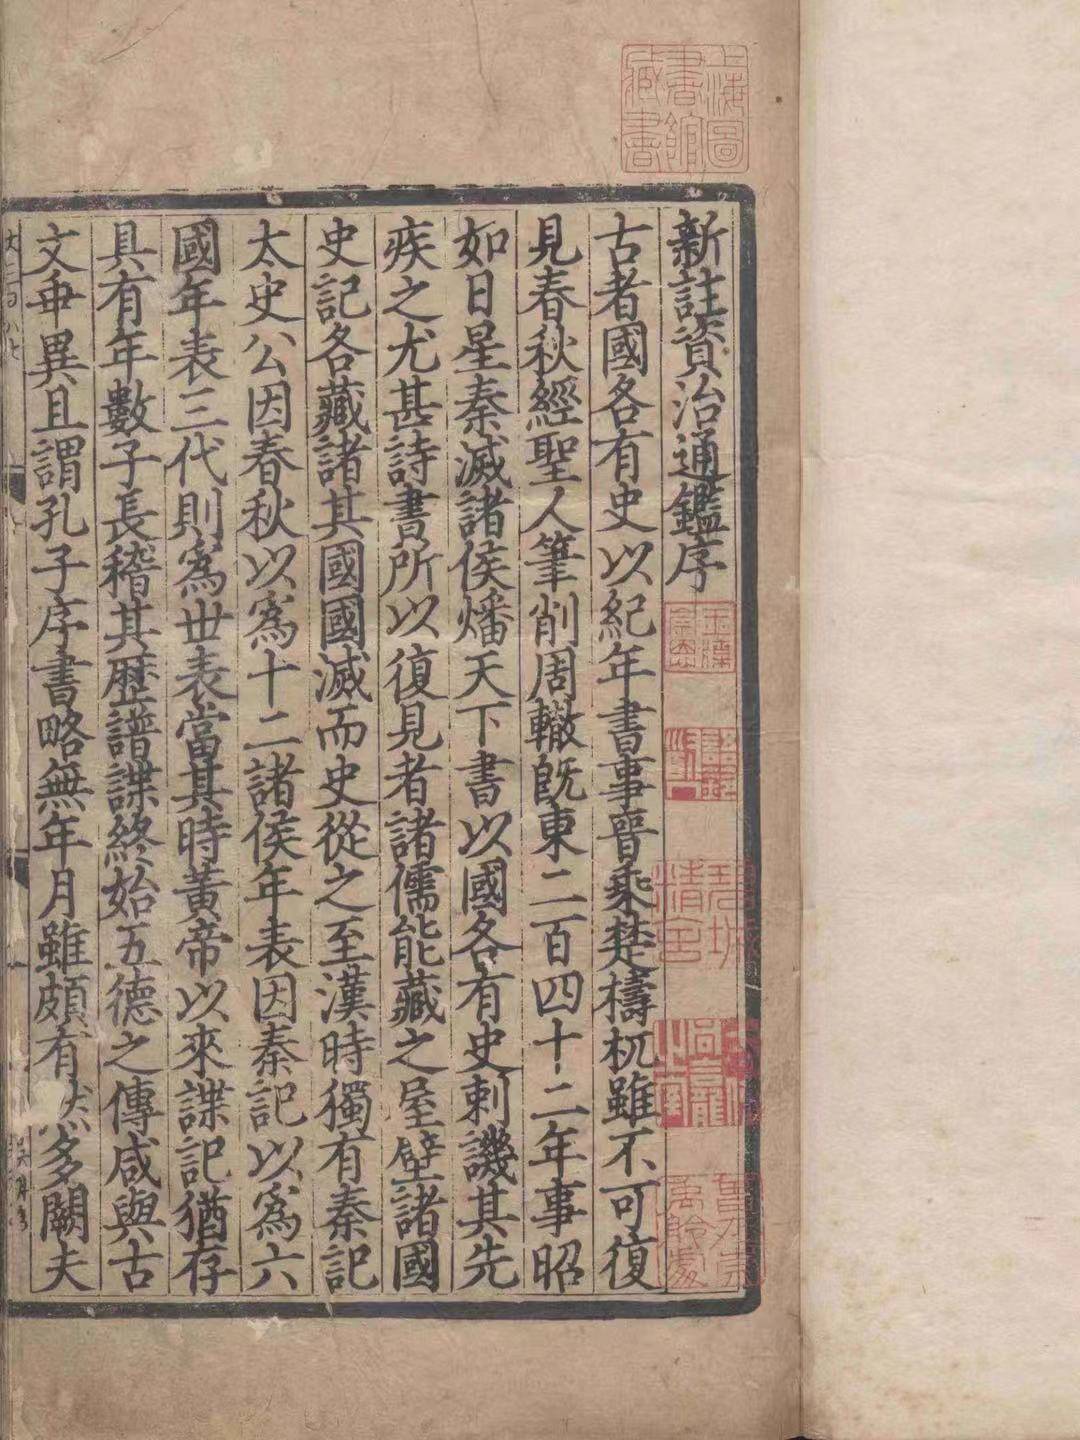 新註資治通鑑序
古者國各有史以紀年書事晉乘楚檮杌雖不可復
見春秋經聖人筆削周轍旣東二百四十二年事昭
如日星秦滅諸侯燔天下書以國各有史刺譏其先
疾之尤甚詩書所以復見者諸儒能藏之屋壁諸國
史記各藏諸其國國滅而史從之至漢時獨有秦記
太史公因春秋以爲十二諸侯年表因秦記以爲六
國年表三代則爲世表當其時黃帝以來諜記猶存
具有年數子長稽其歴譜諜終始五德之傳咸與古
文乖異且謂孔子序書略無年月雖頗有然多闕夫
上海圖書館藏書